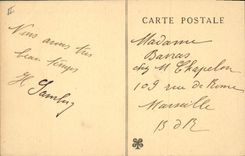 CARTE POSTALE
Nous avons très
beau temps
H Sambuy
Madame
Barras
chez M Chapelon
103 rue de Rome
Marseille
B d R